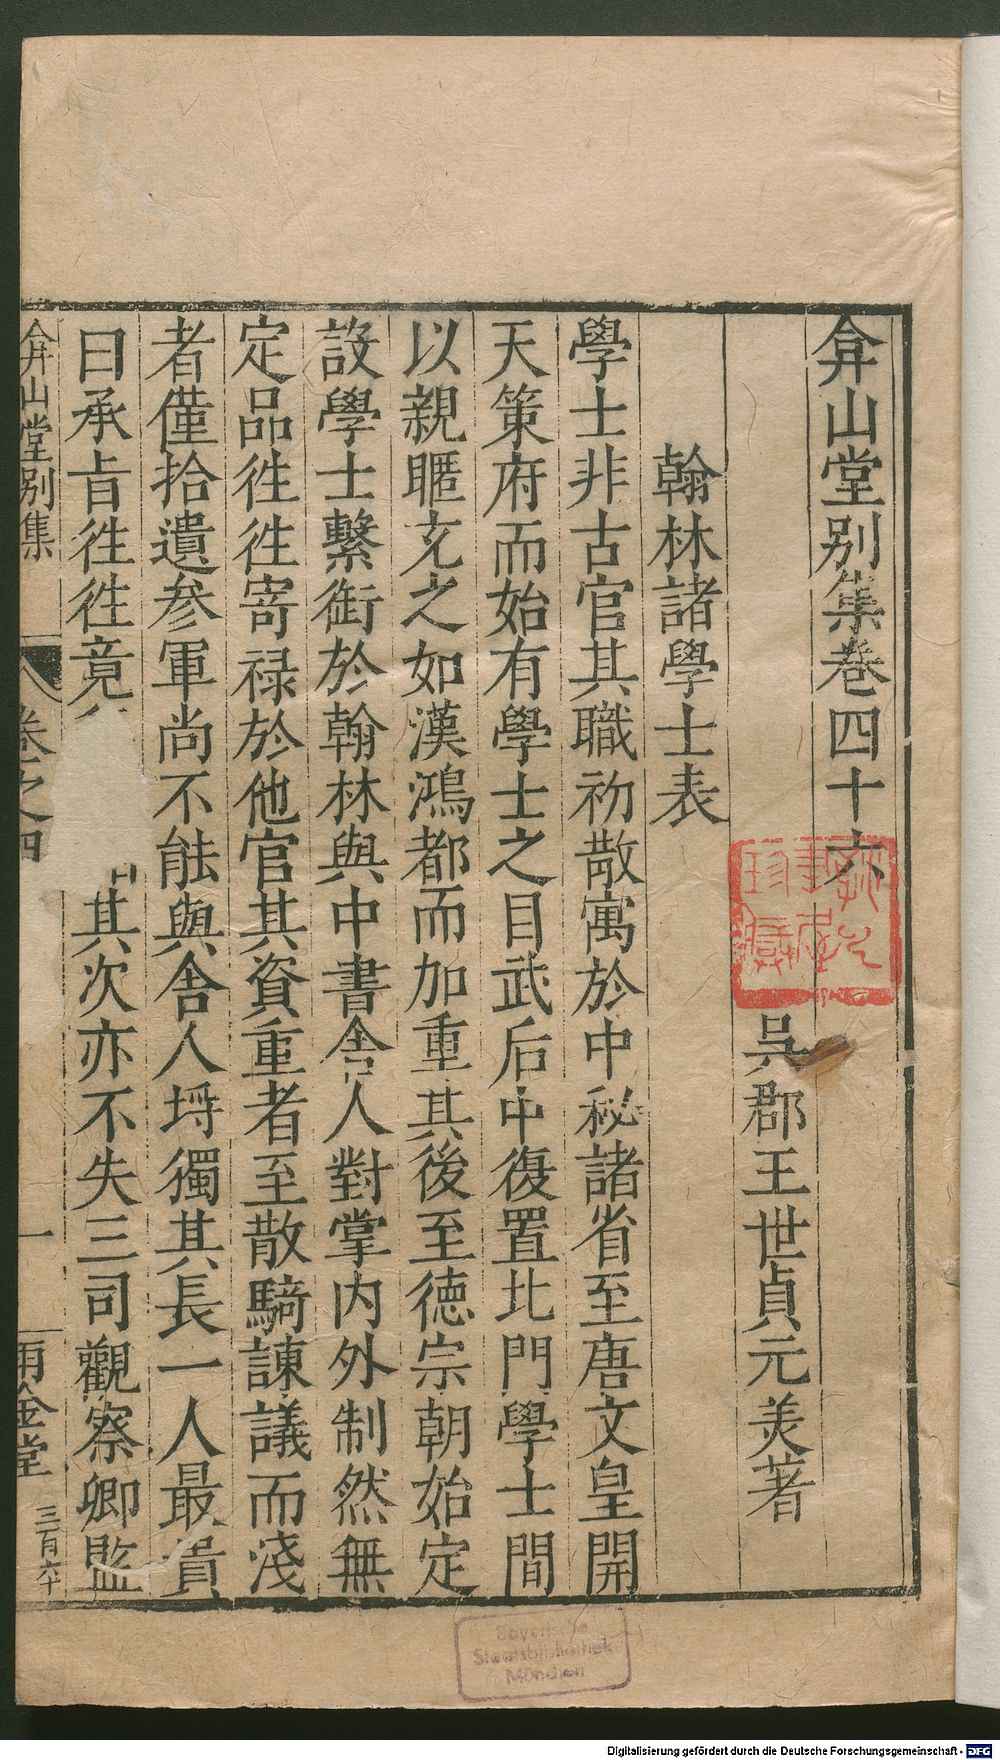 弇山堂别集卷四十六
吳郡王世貞元美著
翰林諸學士表
學士非古官其職初散寓於中秘諸省至唐文皇開
天策府而始有學士之目武后中復置北門學士間
以親暱充之如漢鴻都而加重其後至德宗朝始定
設學士繫銜於翰林與中書舍人對掌内外制然無
定品徃徃寄禄於他官其資重者至散騎諫議而淺
者僅拾遺參軍尚不能與舍人埒獨其長一人最貴
曰承旨徃徃竟
其次亦不失三司觀察卿監
弇山堂别集
卷之四
一
雨金堂
三百六十
Bayerische
Staatsbibliothek
München
Digitalisierung gefördert durch die Deutsche Forschungsgemeinschaft - DFG